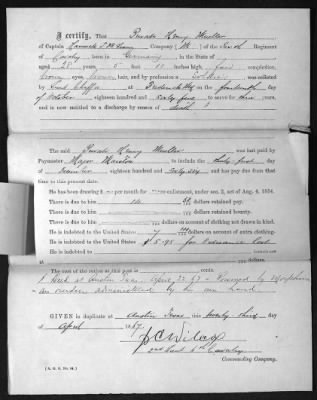 I Certify, That Private Henry Mueller
of Captain Company ( M ) of the Sixth Regiment
of Cavalry born in Germany in the State of
aged 25 years 5 feet 11 inches high, fair complexion,
brown eyes, brown hair, and by profession a Soldier, was enlisted
by at Frederick Md on the fourteenth day
of October eighteen hundred and Sixty four to serve three years,
and is now entitled to a discharge by reason of death
The said Private Henry Mueller was last paid by
Paymaster Major to include the thirty first day
of December eighteen hundred and Sixty six and has pay due from that
time to the present date.
He has been drawing $ per month for reenlistment, under sec. 2, act of Aug. 4, 1854.
There is due to him dollars retained pay.
There is due to him dollars retained bounty.
There is due to him dollars on account of clothing not drawn in kind.
He is indebted to the United States dollars on account of extra clothing.
He is indebted to the United States $ for Ordnance lost
at
The cost of the ration at this post is cents.
Died at Austin Texas April 22 67 Poisoned by Morphine
an overdose administered by his own hand.
GIVEN in duplicate at Austin Texas this twenty third day of
April 1867
2nd Lieut 6th Cavalry
Commanding Company.